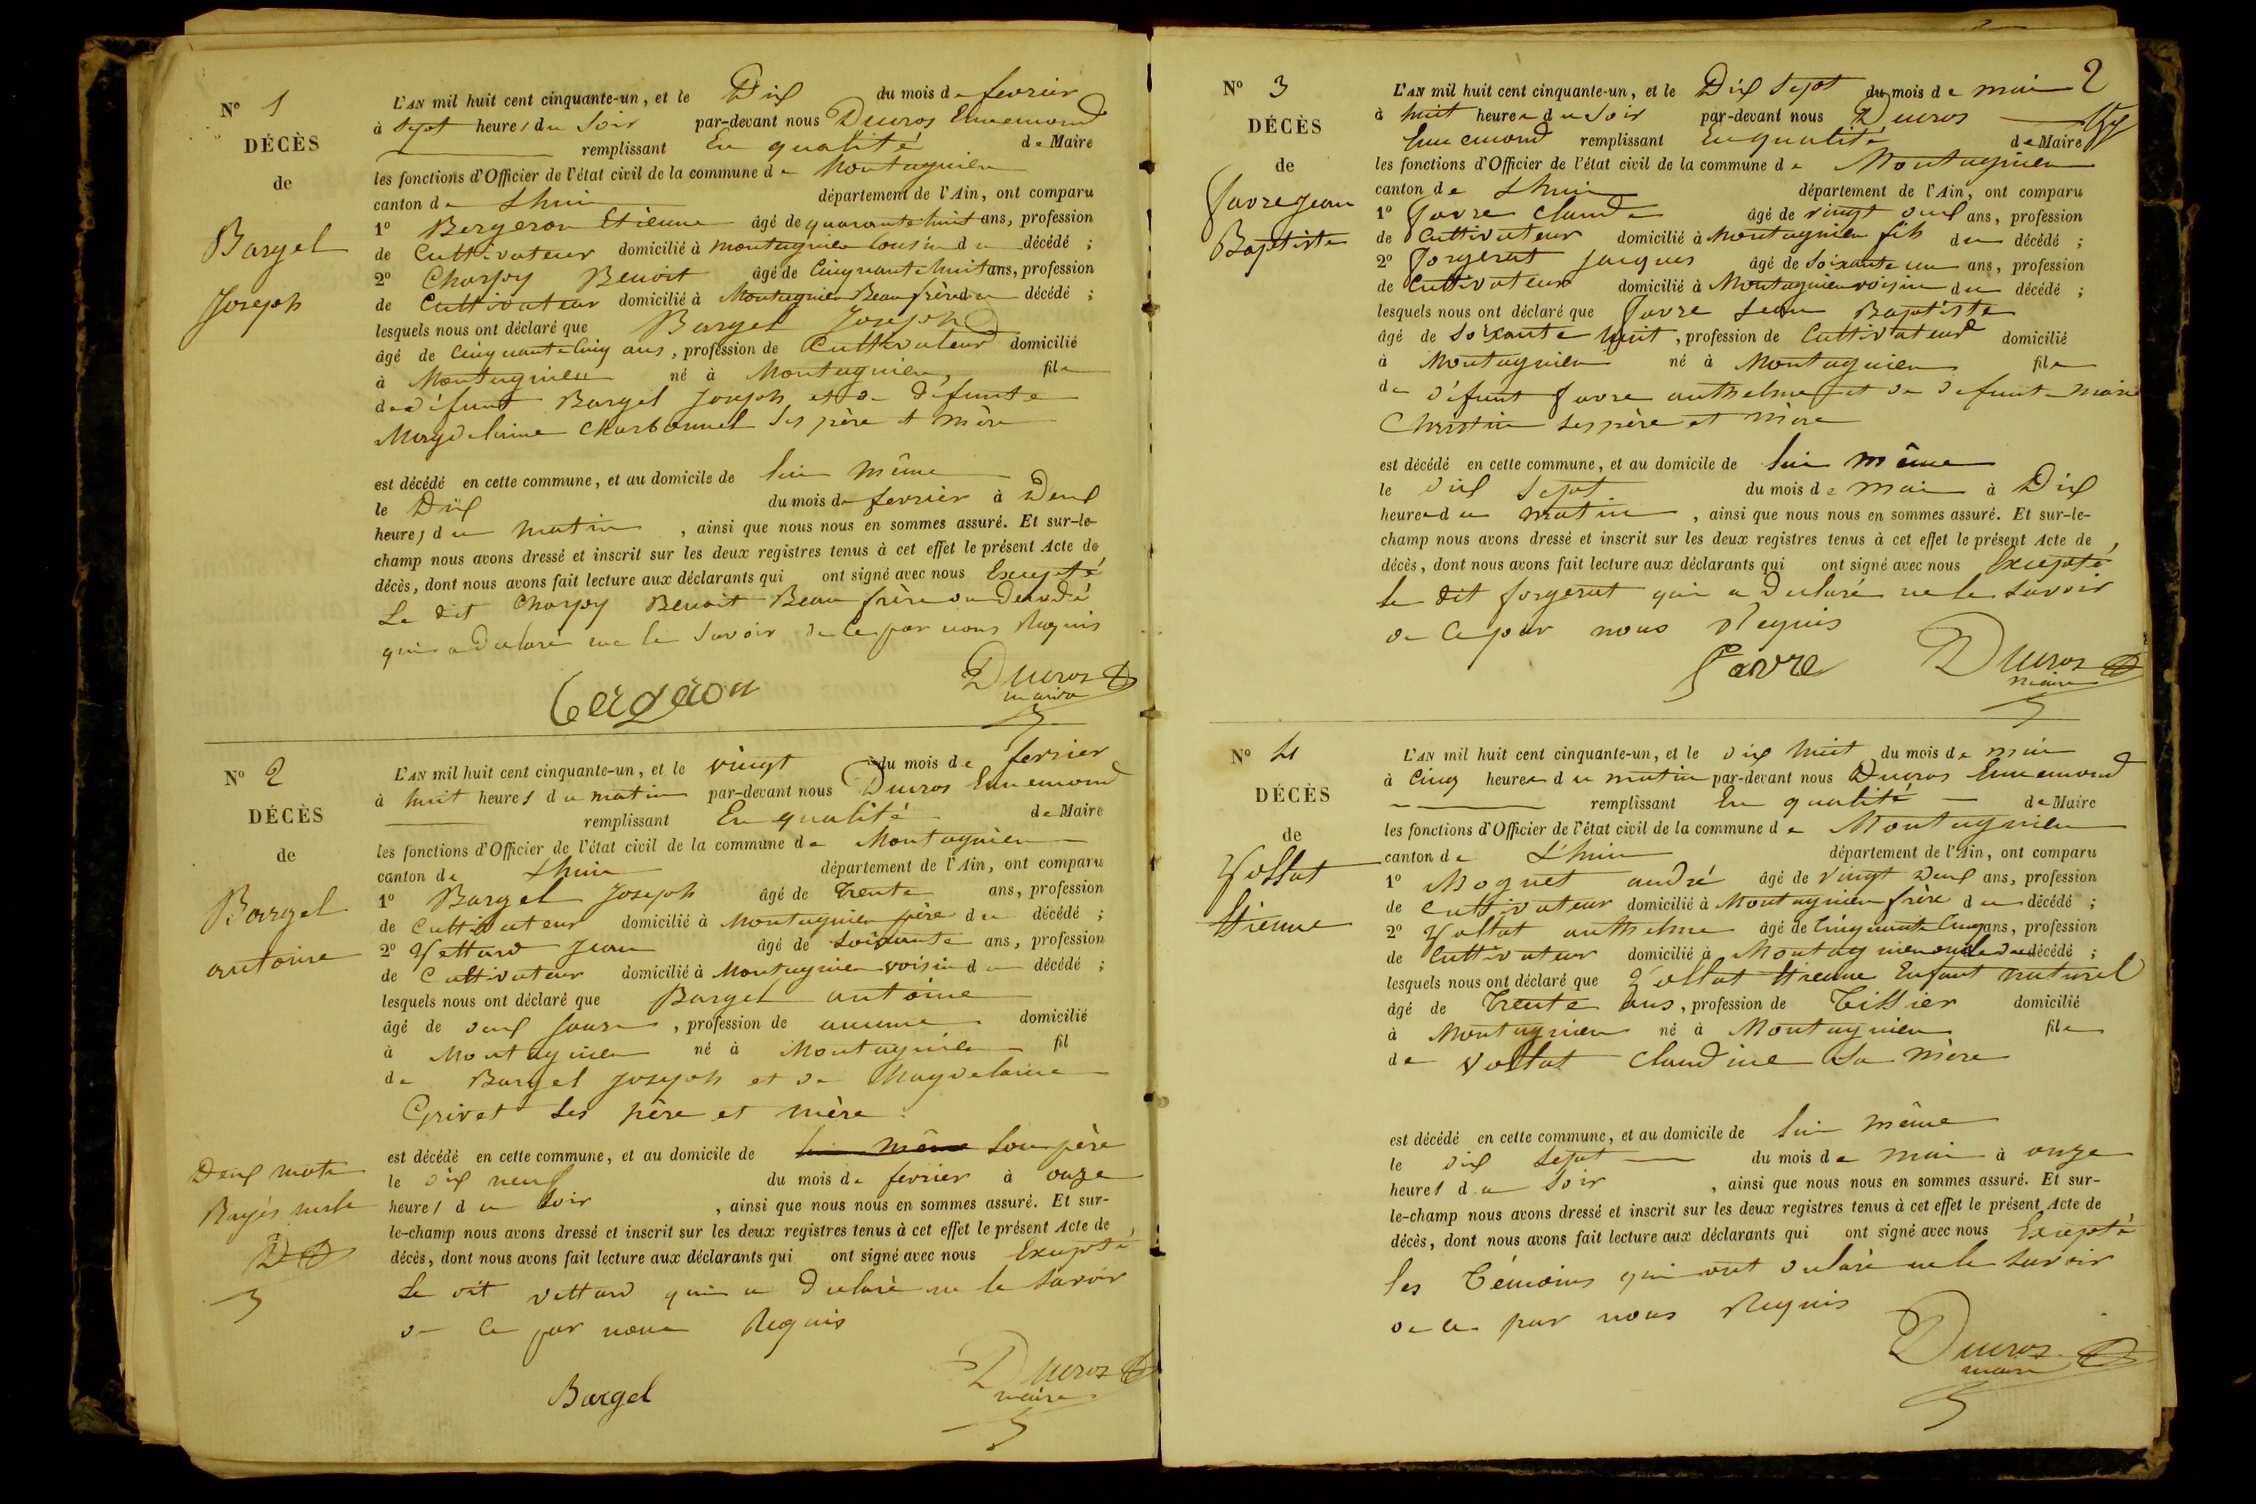 N° 1
DÉCÈS
de
Bargel
Joseph
L'AN mil huit cent cinquante-un, et le Dix du mois de fevrier
à sept heures du Soir par-devant nous Ducros Ennemond
remplissant En qualité de Maire
les fonctions d'Officier de l'état civil de la commune de Montagnieu
canton de Lhuis département de l'Ain, ont comparu
1° Bergeron Etienne âgé de quarante huit ans, profession
de Cultivateur domicilié à montagnieu Cousin du décédé ;
2° Charpy Benoit âgé de Cinquante huit ans, profession
de Cultivateur domicilié à Montagnieu Beau frère du décédé ;
lesquels nous ont déclaré que Bargel Joseph
âgé de Cinquante Cinq ans, profession de Cultivateur domicilié
à Montagnieu né à Montagnieu, fils
de défunt Bargel Joseph et de défunte
Magdelaine Charbonnel Ses père et mère
est décédé en cette commune, et au domicile de lui même
le Dix du mois de fevrier à Deux
heures du matin, ainsi que nous nous en sommes assuré. Et sur-le-
champ nous avons dressé et inscrit sur les deux registres tenus à cet effet le présent Acte de
décès, dont nous avons fait lecture aux déclarants qui ont signé avec nous Excepté
Le dit Charpy Benoit Beau frère du décédé
qui a declaré ne le Savoir de Ce par nous Requis
Bergeron
Ducros
maire
N° 2
DÉCÈS
de
Bargel
antoine
Deux mots
Rayés nuls
L'AN mil huit cent cinquante-un, et le vingt du mois de fevrier
à huit heures du matin par-devant nous Ducros Ennemond
remplissant En qualité de Maire
les fonctions d'Officier de l'état civil de la commune de Montagnieu
canton de Lhuis département de l'Ain, ont comparu
1° Bargel Joseph âgé de Trente ans, profession
de Cultivateur domicilié à Montagnieu père du décédé ;
2° Vettard Jean âgé de Soixante ans, profession
de Cultivateur domicilié à Montagnieu voisin du décédé ;
lesquels nous ont déclaré que Bargel antoine
âgé de deux Jours, profession de aucune domicilié
à Montagnieu né à Montagnieu fil
de Bargel Joseph et de Magdelaine
Grivet Ses père et mère
est décédé en cette commune, et au domicile de lui même Son père
le dix neuf du mois de fevrier à onze
heures du Soir, ainsi que nous nous en sommes assuré. Et sur-
le-champ nous avons dressé et inscrit sur les deux registres tenus à cet effet le présent Acte de
décès, dont nous avons fait lecture aux déclarants qui ont signé avec nous Excepté
Le dit Vettard qui a declaré ne le Savoir
de Ce par nous Requis
Bargel
Ducros
maire
2
N° 3
DÉCÈS
de
Favre Jean
Baptiste
L'AN mil huit cent cinquante-un, et le Dix Sept du mois de mai
à huit heures du Soir par-devant nous Ducros
Ennemond remplissant En qualité de Maire
les fonctions d'Officier de l'état civil de la commune de Montagnieu
canton de Lhuis département de l'Ain, ont comparu
1° Favre Claude âgé de vingt deux ans, profession
de Cultivateur domicilié à Montagnieu fils du décédé ;
2° Forgerat Jacques âgé de Soixante un ans, profession
de Cultivateur domicilié à Montagnieu voisin du décédé ;
lesquels nous ont déclaré que Favre Jean Baptiste
âgé de Soixante huit, profession de Cultivateur domicilié
à Montagnieu né à Montagnieu fils
de défunt Favre anthelme et de defunte Marie
Christin Ses père et mère
est décédé en cette commune, et au domicile de lui même
le dix Sept du mois de mai à Dix
heures du matin, ainsi que nous nous en sommes assuré. Et sur-le-
champ nous avons dressé et inscrit sur les deux registres tenus à cet effet le présent Acte de
décès, dont nous avons fait lecture aux déclarants qui ont signé avec nous Excepté
Le dit forgerat qui a Declaré ne le Savoir
de Ce par nous Requis
Favre
Ducros
maire
N° 4
DÉCÈS
de
Vollat
Etienne
L'AN mil huit cent cinquante-un, et le dix huit du mois de mai
à Cinq heures du matin par-devant nous Ducros Ennemond
remplissant En qualité de Maire
les fonctions d'Officier de l'état civil de la commune de Montagnieu
canton de Lhuis département de l'Ain, ont comparu
1° Moquet andré âgé de vingt Deux ans, profession
de Cultivateur domicilié à Montagnieu frère du décédé ;
2° Vollat anthelme âgé de Cinquante Cinq ans, profession
de Cultivateur domicilié à Montagnieu oncle du décédé ;
lesquels nous ont déclaré que Vollat Etienne Enfant naturel
âgé de Trente ans, profession de Tissier domicilié
à Montagnieu né à Montagnieu fils
de Vollat Claudine Sa mère
est décédé en cette commune, et au domicile de lui même
le dix Sept du mois de mai à onze
heures du Soir, ainsi que nous nous en sommes assuré. Et sur-
le-champ nous avons dressé et inscrit sur les deux registres tenus à cet effet le présent Acte de
décès, dont nous avons fait lecture aux déclarants qui ont signé avec nous Excepté
les Témoins qui ont declaré ne le Savoir
de ce par nous Requis
Ducros
maire